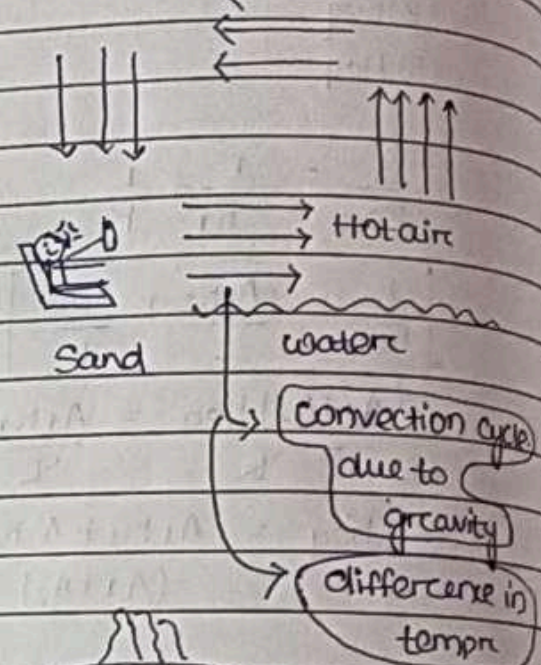 Hot air
Sand
water
convection cycle
due to
gravity
difference in
tempr